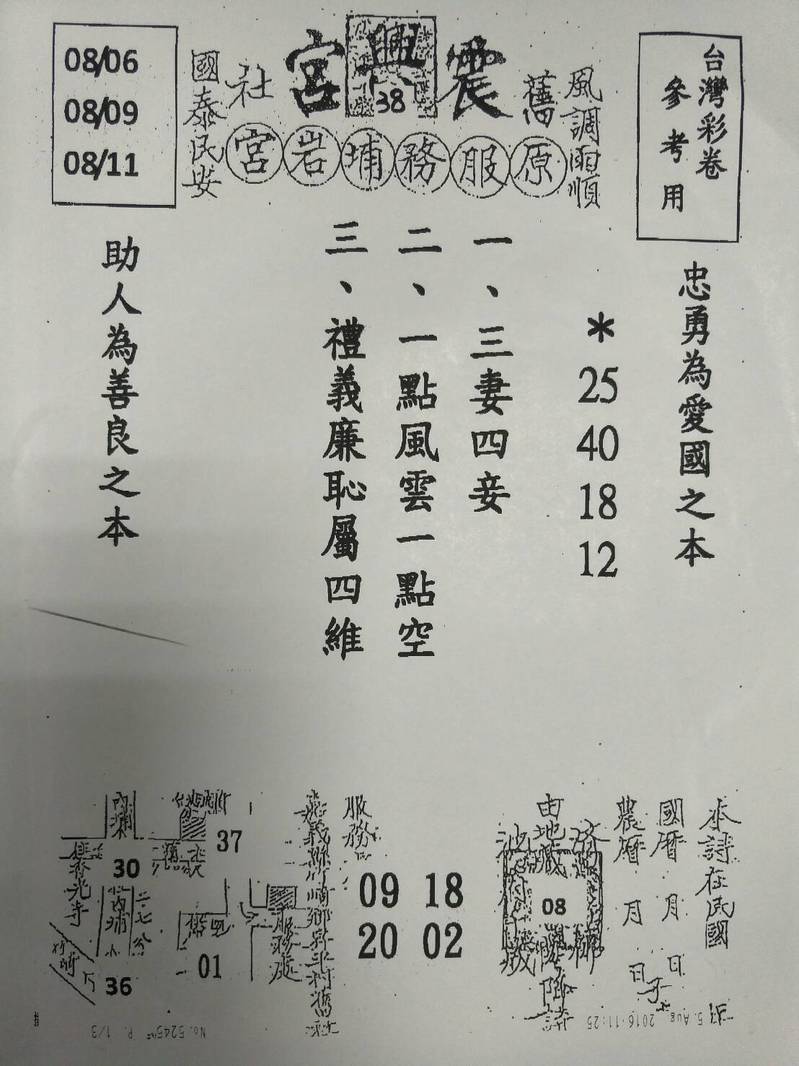 台灣彩卷
參考用
風調雨順
舊
震興宮
38
社
國泰民安
原服務埔岩宮
08/06
08/09
08/11
忠勇為愛國之本
*
25
40
18
12
一、三妻四妾
二、一點風雲一點空
三、禮義廉恥屬四維
助人為善良之本
本詩在民國
國曆 月 日
農曆 月 日
08
服務
09 18
20 02
服務處
37
30
01
36
5. Aug 2016 11:25
P. 1/3